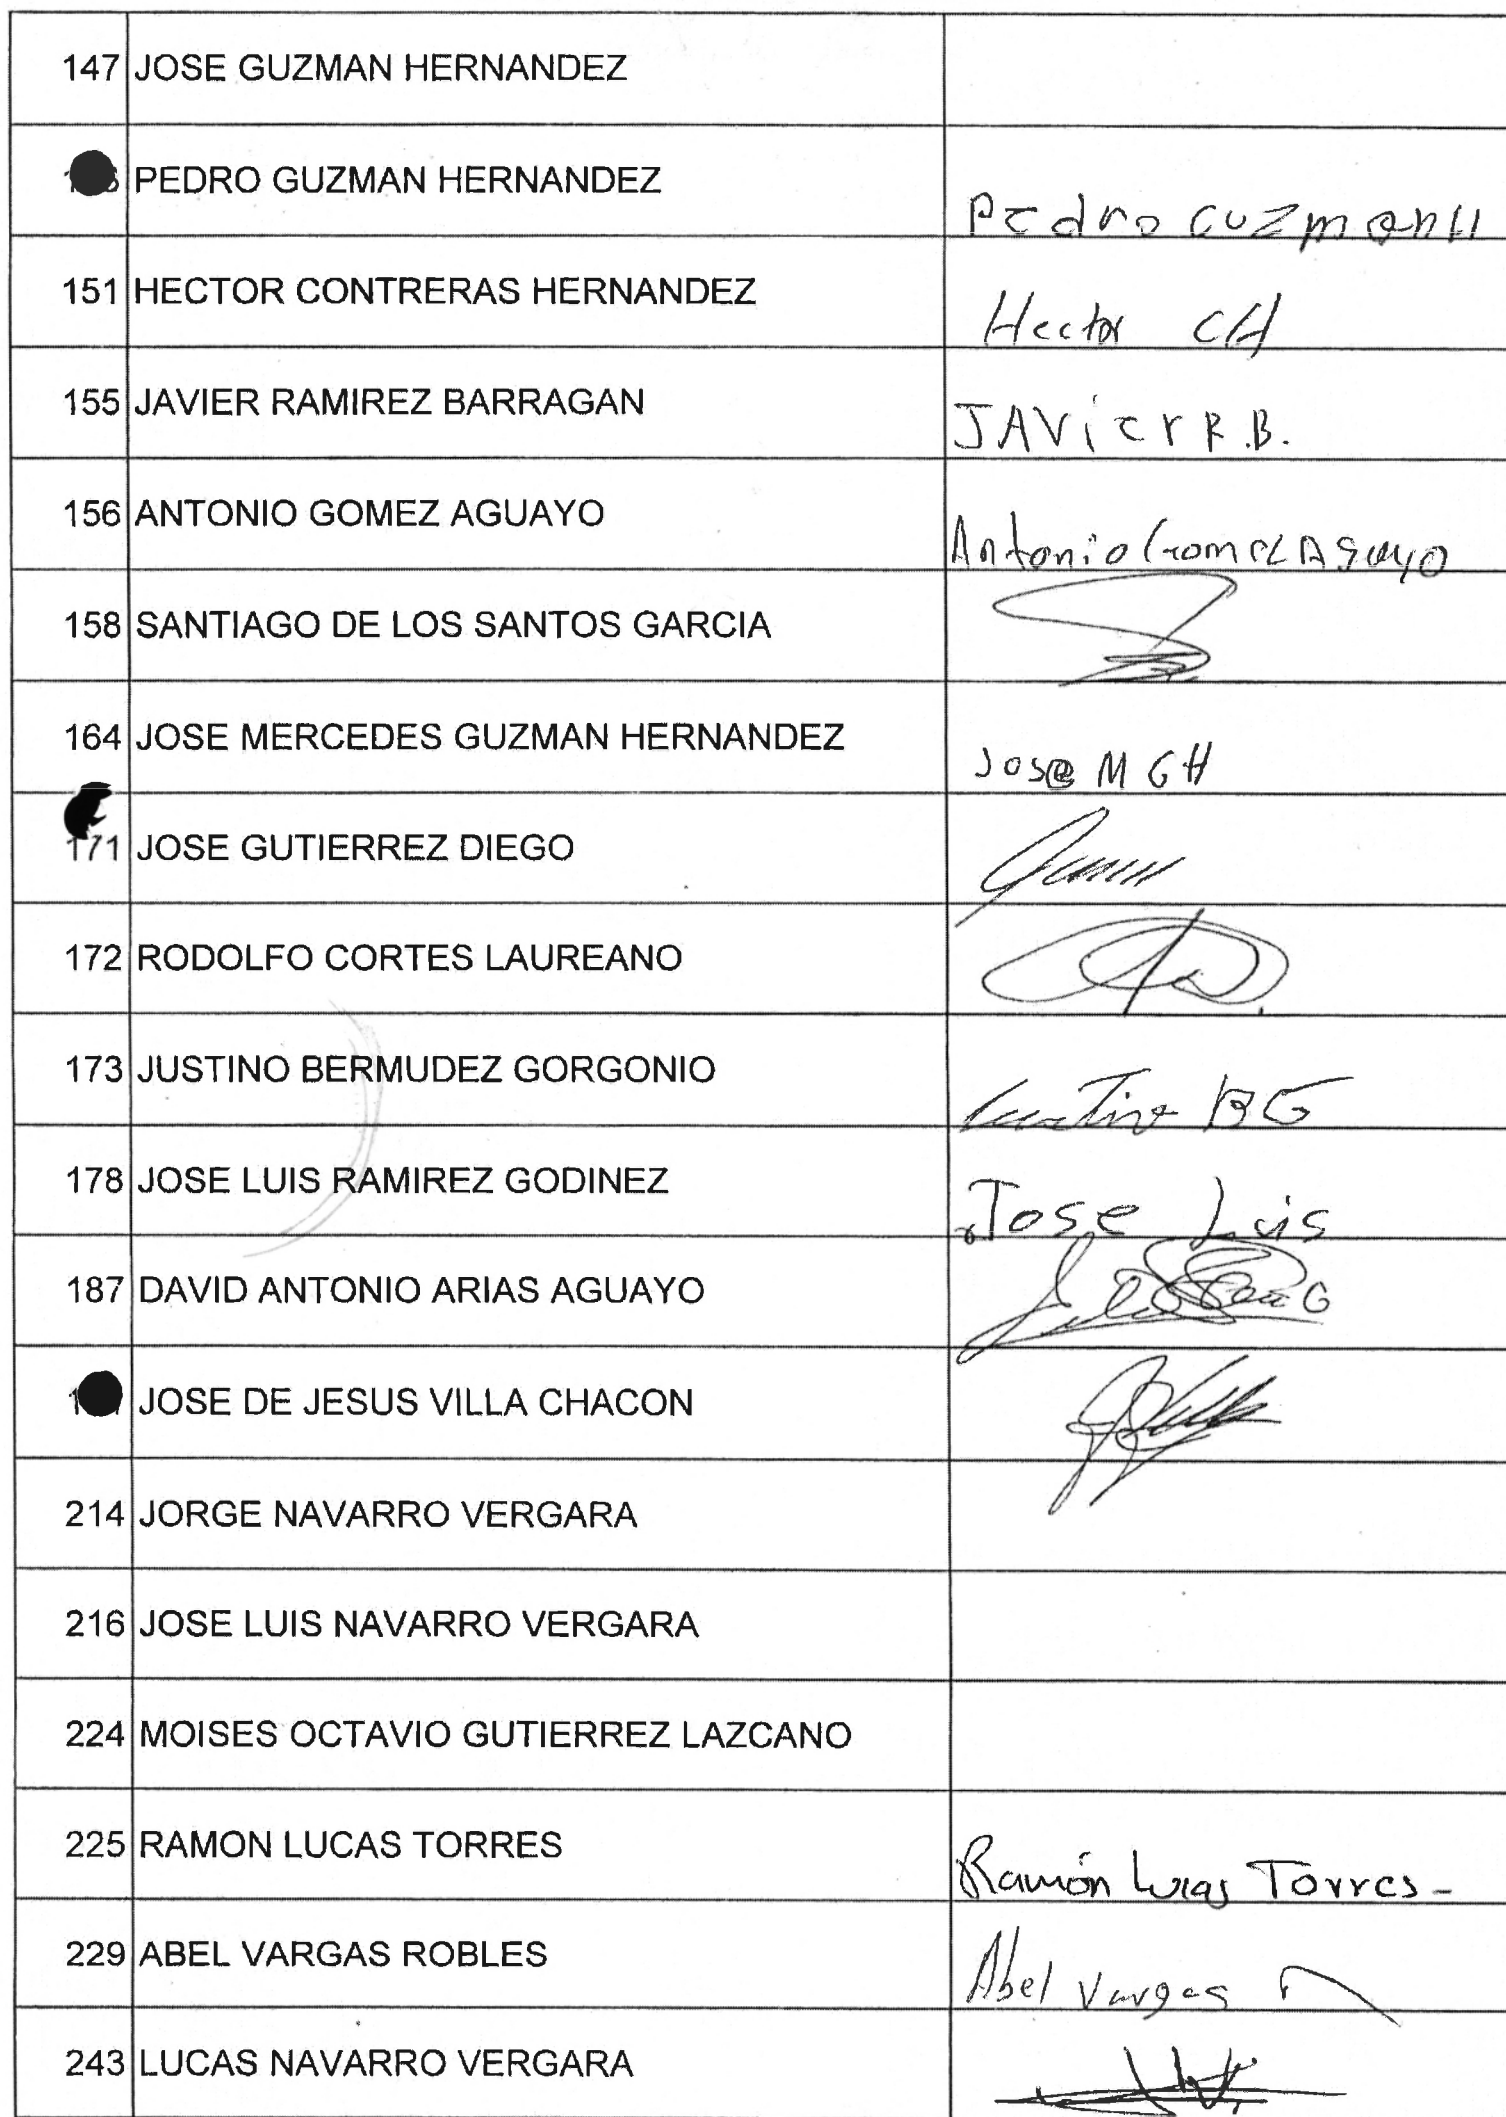 147 JOSE GUZMAN HERNANDEZ
PEDRO GUZMAN HERNANDEZ Pedro GUZman H
151 HECTOR CONTRERAS HERNANDEZ Hector CH
155 JAVIER RAMIREZ BARRAGAN JAVier R.B.
156 ANTONIO GOMEZ AGUAYO Antonio Gomez Aguayo
158 SANTIAGO DE LOS SANTOS GARCIA
164 JOSE MERCEDES GUZMAN HERNANDEZ Jose M G H
171 JOSE GUTIERREZ DIEGO
172 RODOLFO CORTES LAUREANO
173 JUSTINO BERMUDEZ GORGONIO BG
178 JOSE LUIS RAMIREZ GODINEZ Jose Luis
187 DAVID ANTONIO ARIAS AGUAYO
JOSE DE JESUS VILLA CHACON
214 JORGE NAVARRO VERGARA
216 JOSE LUIS NAVARRO VERGARA
224 MOISES OCTAVIO GUTIERREZ LAZCANO
225 RAMON LUCAS TORRES Ramón Lucas Torres -
229 ABEL VARGAS ROBLES Abel Vargas
243 LUCAS NAVARRO VERGARA